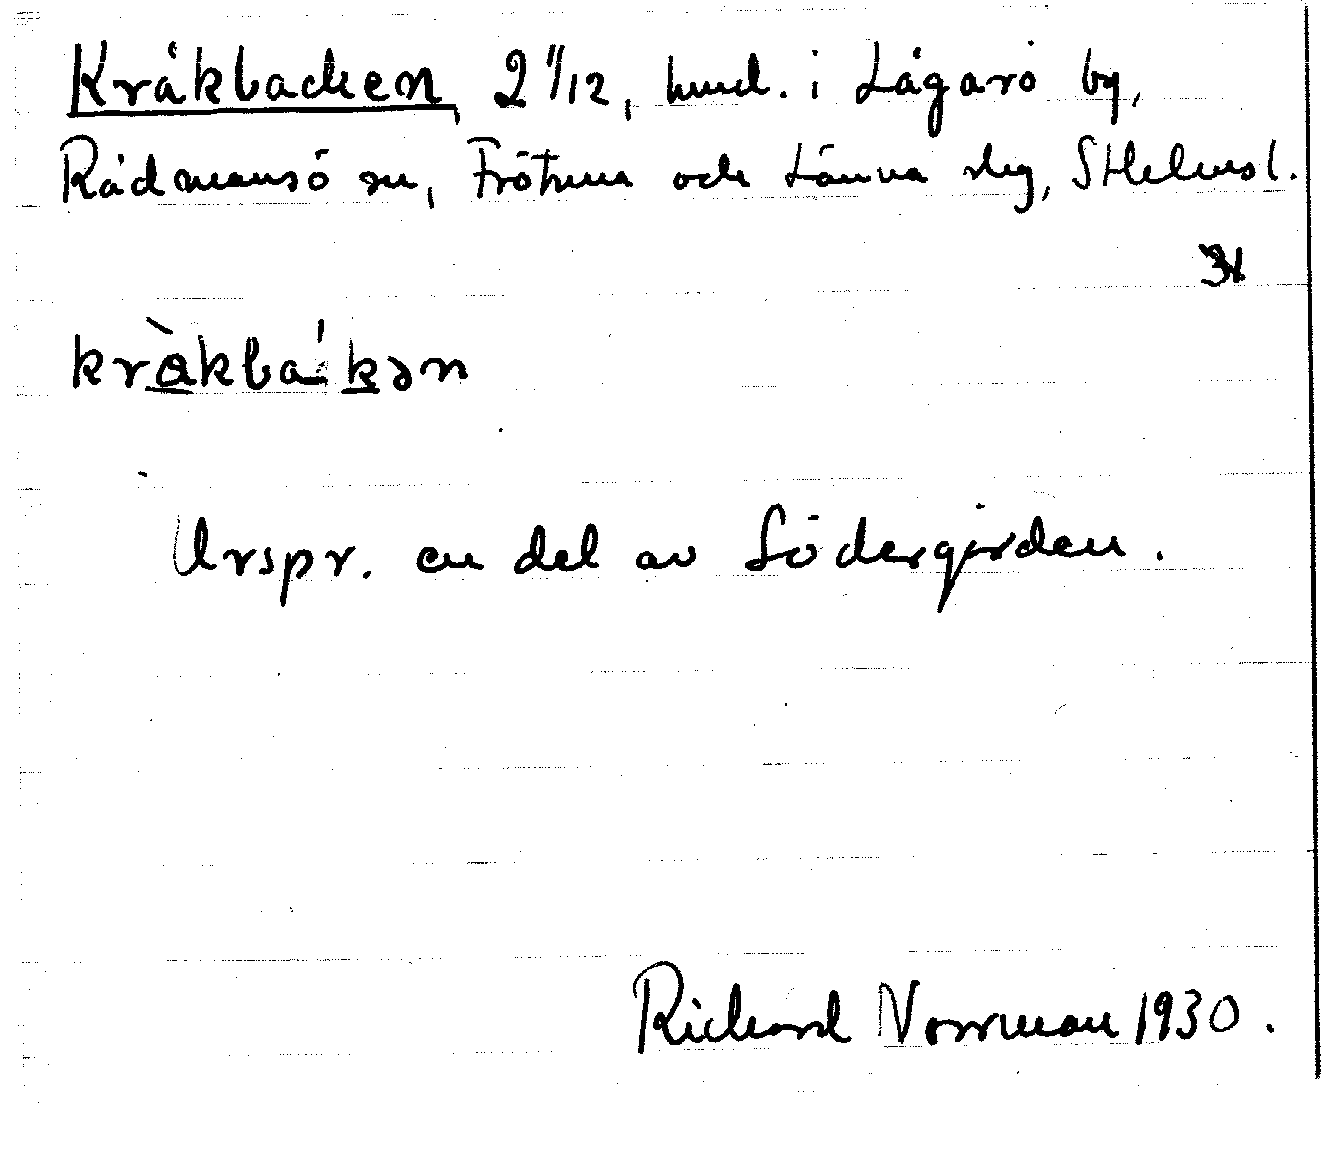 Kråkbacken, 2 1/12, hmd. i Lågarö by,
Rådmansö sn, Frötuna och Länna slg, Sthlmsl.
kràkbákən
Urspr. en del av Södergården.
Richard Norrman 1930.